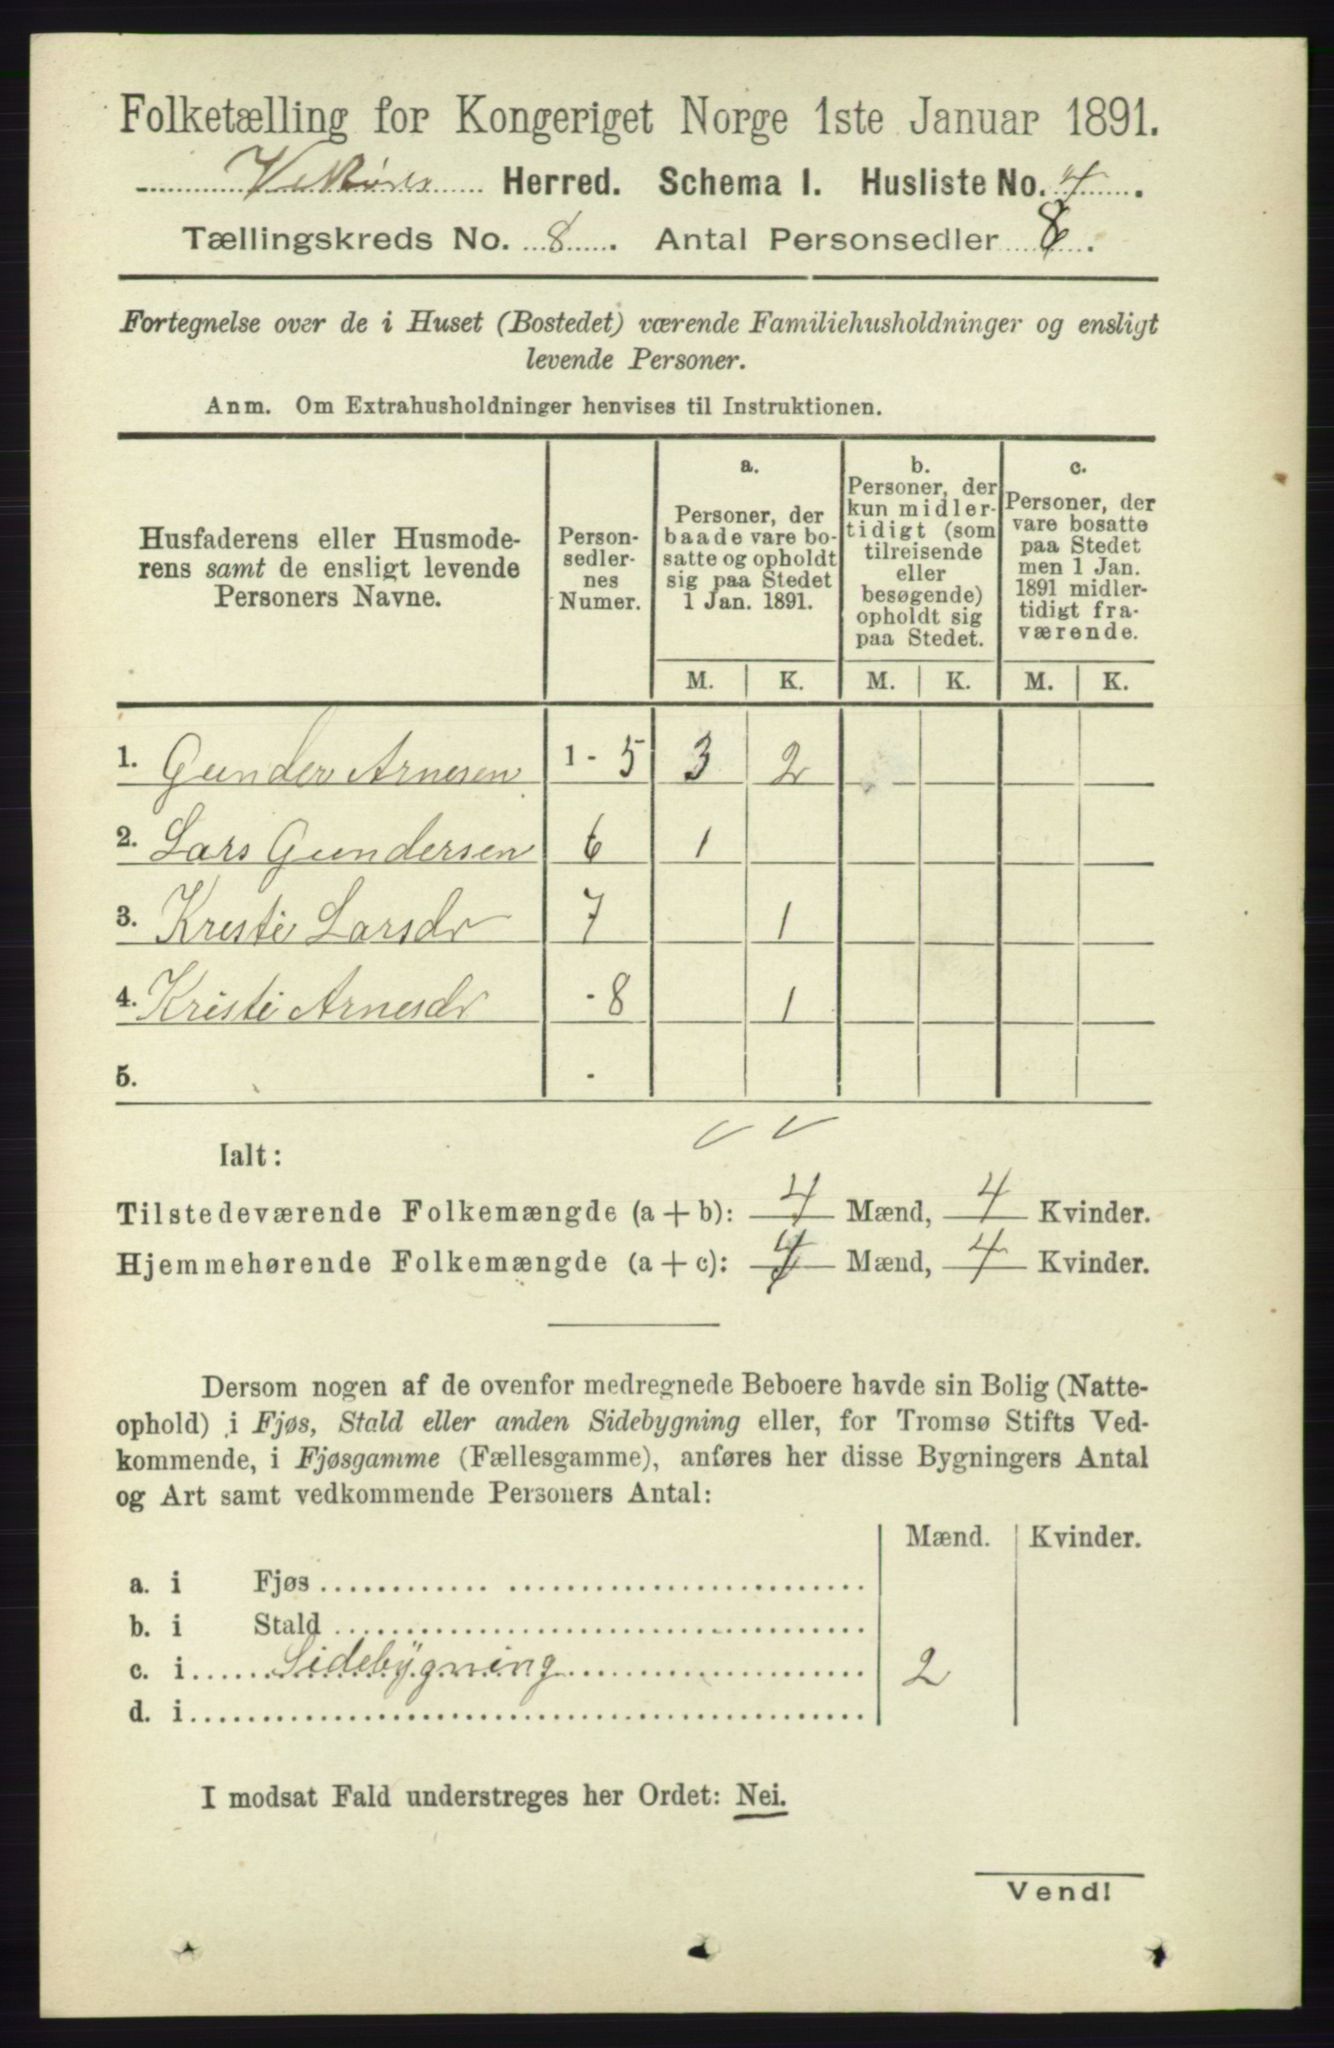 Folketælling for Kongeriget Norge 1ste Januar 1891.
Vikørs Herred. Schema I. Husliste No. 4.
Tællingskreds No. 8. Antal Personsedler 8.
Fortegnelse over de i Huset (Bostedet) værende Familiehusholdninger og ensligt
levende Personer.
Anm. Om Extrahusholdninger henvises til Instruktionen.
Husfaderens eller Husmode-
rens samt de ensligt levende
Personers Navne.
Person-
sedler-
nes
Numer.
a.
Personer, der
baade vare bo-
satte og opholdt
sig paa Stedet
1 Jan. 1891.
b.
Personer, der
kun midler-
tidigt (som
tilreisende
eller
besøgende)
opholdt sig
paa Stedet.
c.
Personer, der
vare bosatte
paa Stedet
men 1 Jan.
1891 midler-
tidigt fra-
værende.
M. K. M. K. M. K.
1. Gunder Arnesen 1 - 5 3 2
2. Lars Gundersen 6 1
3. Kristi Larsdr 7 1
4. Kristi Arnesdr - 8 1
5. -
Ialt:
Tilstedeværende Folkemængde (a + b): 4 Mænd, 4 Kvinder.
Hjemmehørende Folkemængde (a + c): 4 Mænd, 4 Kvinder.
Dersom nogen af de ovenfor medregnede Beboere havde sin Bolig (Natte-
ophold) i Fjøs, Stald eller anden Sidebygning eller, for Tromsø Stifts Ved-
kommende, i Fjøsgamme (Fællesgamme), anføres her disse Bygningers Antal
og Art samt vedkommende Personers Antal:
Mænd. Kvinder.
a. i Fjøs
b. i Stald
c. i Sidebygning 2
d. i
I modsat Fald understreges her Ordet: Nei.
Vend!